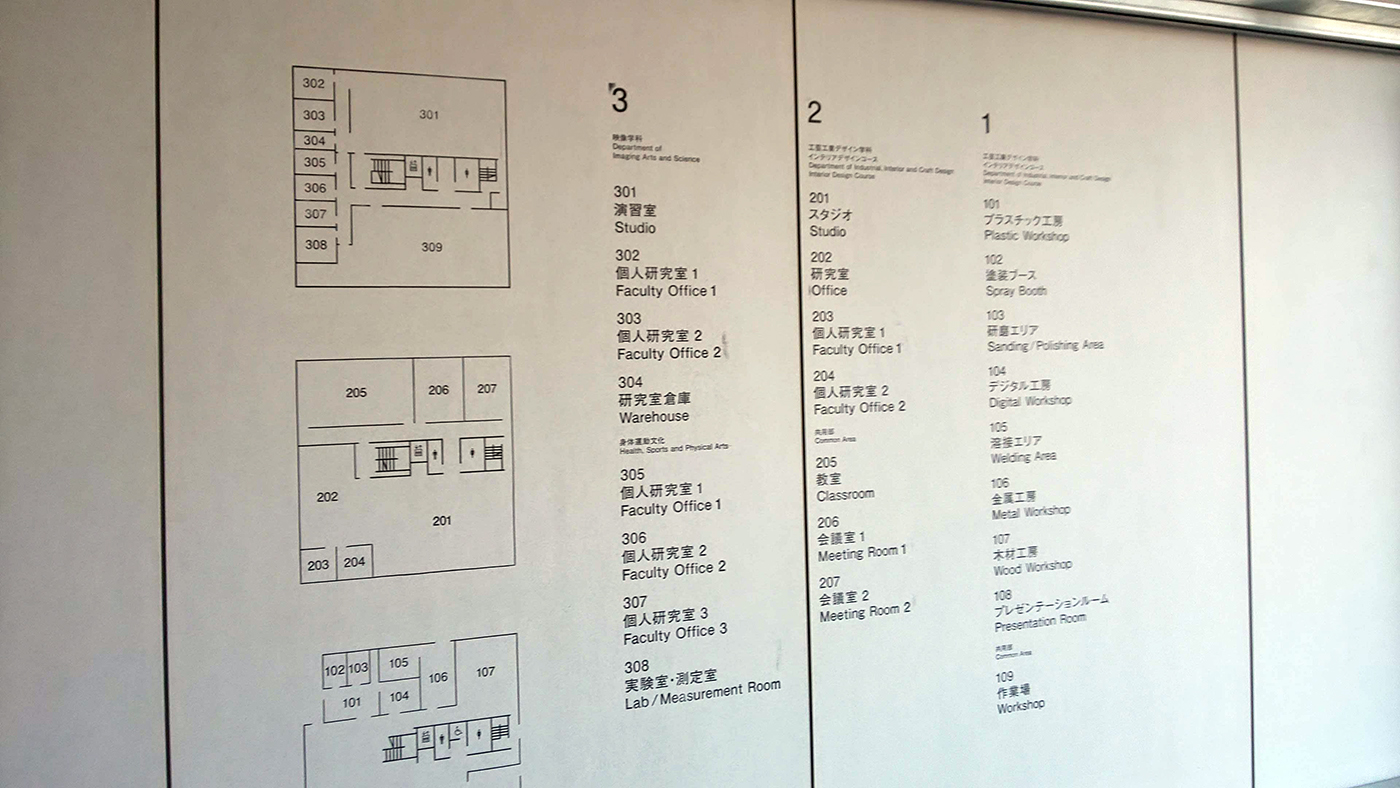 302
303
304
305
306
307
308
301
309
205
206
207
202
201
203
204
102
103
105
106
107
101
104
3
映像学科
Department of
Imaging Arts and Science
301
演習室
Studio
302
個人研究室 1
Faculty Office 1
303
個人研究室 2
Faculty Office 2
304
研究室倉庫
Warehouse
身体運動文化
Health, Sports and Physical Arts
305
個人研究室 1
Faculty Office 1
306
個人研究室 2
Faculty Office 2
307
個人研究室 3
Faculty Office 3
308
実験室・測定室
Lab / Measurement Room
2
工芸工業デザイン学科
インテリアデザインコース
Department of Industrial, Interior and Craft Design
Interior Design Course
201
スタジオ
Studio
202
研究室
Office
203
個人研究室 1
Faculty Office 1
204
個人研究室 2
Faculty Office 2
共用部
Common Area
205
教室
Classroom
206
会議室 1
Meeting Room 1
207
会議室 2
Meeting Room 2
1
工芸工業デザイン学科
インテリアデザインコース
Department of Industrial, Interior and Craft Design
Interior Design Course
101
プラスチック工房
Plastic Workshop
102
塗装ブース
Spray Booth
103
研磨エリア
Sanding / Polishing Area
104
デジタル工房
Digital Workshop
105
溶接エリア
Welding Area
106
金属工房
Metal Workshop
107
木材工房
Wood Workshop
108
プレゼンテーションルーム
Presentation Room
共用部
Common Area
109
作業場
Workshop